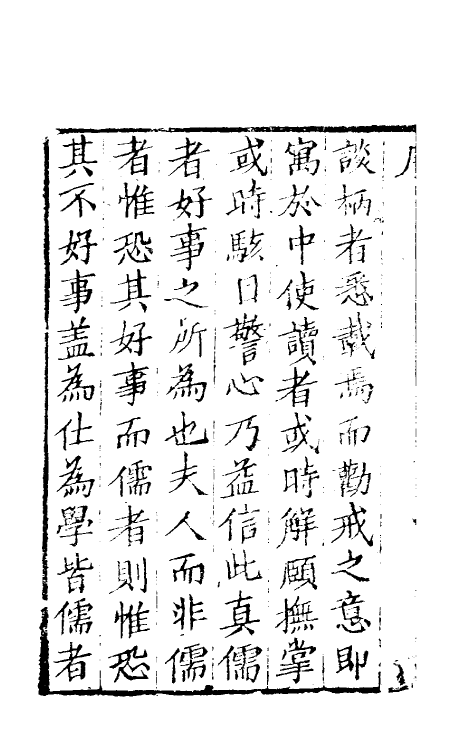 談柄者悉載焉而勸戒之意即
寓於中使讀者或時解頤撫掌
或時駭日警心乃益信此真儒
者好事之所為也夫人而非儒
者惟恐其好事而儒者則惟恐
其不好事盖為仕為學皆儒者